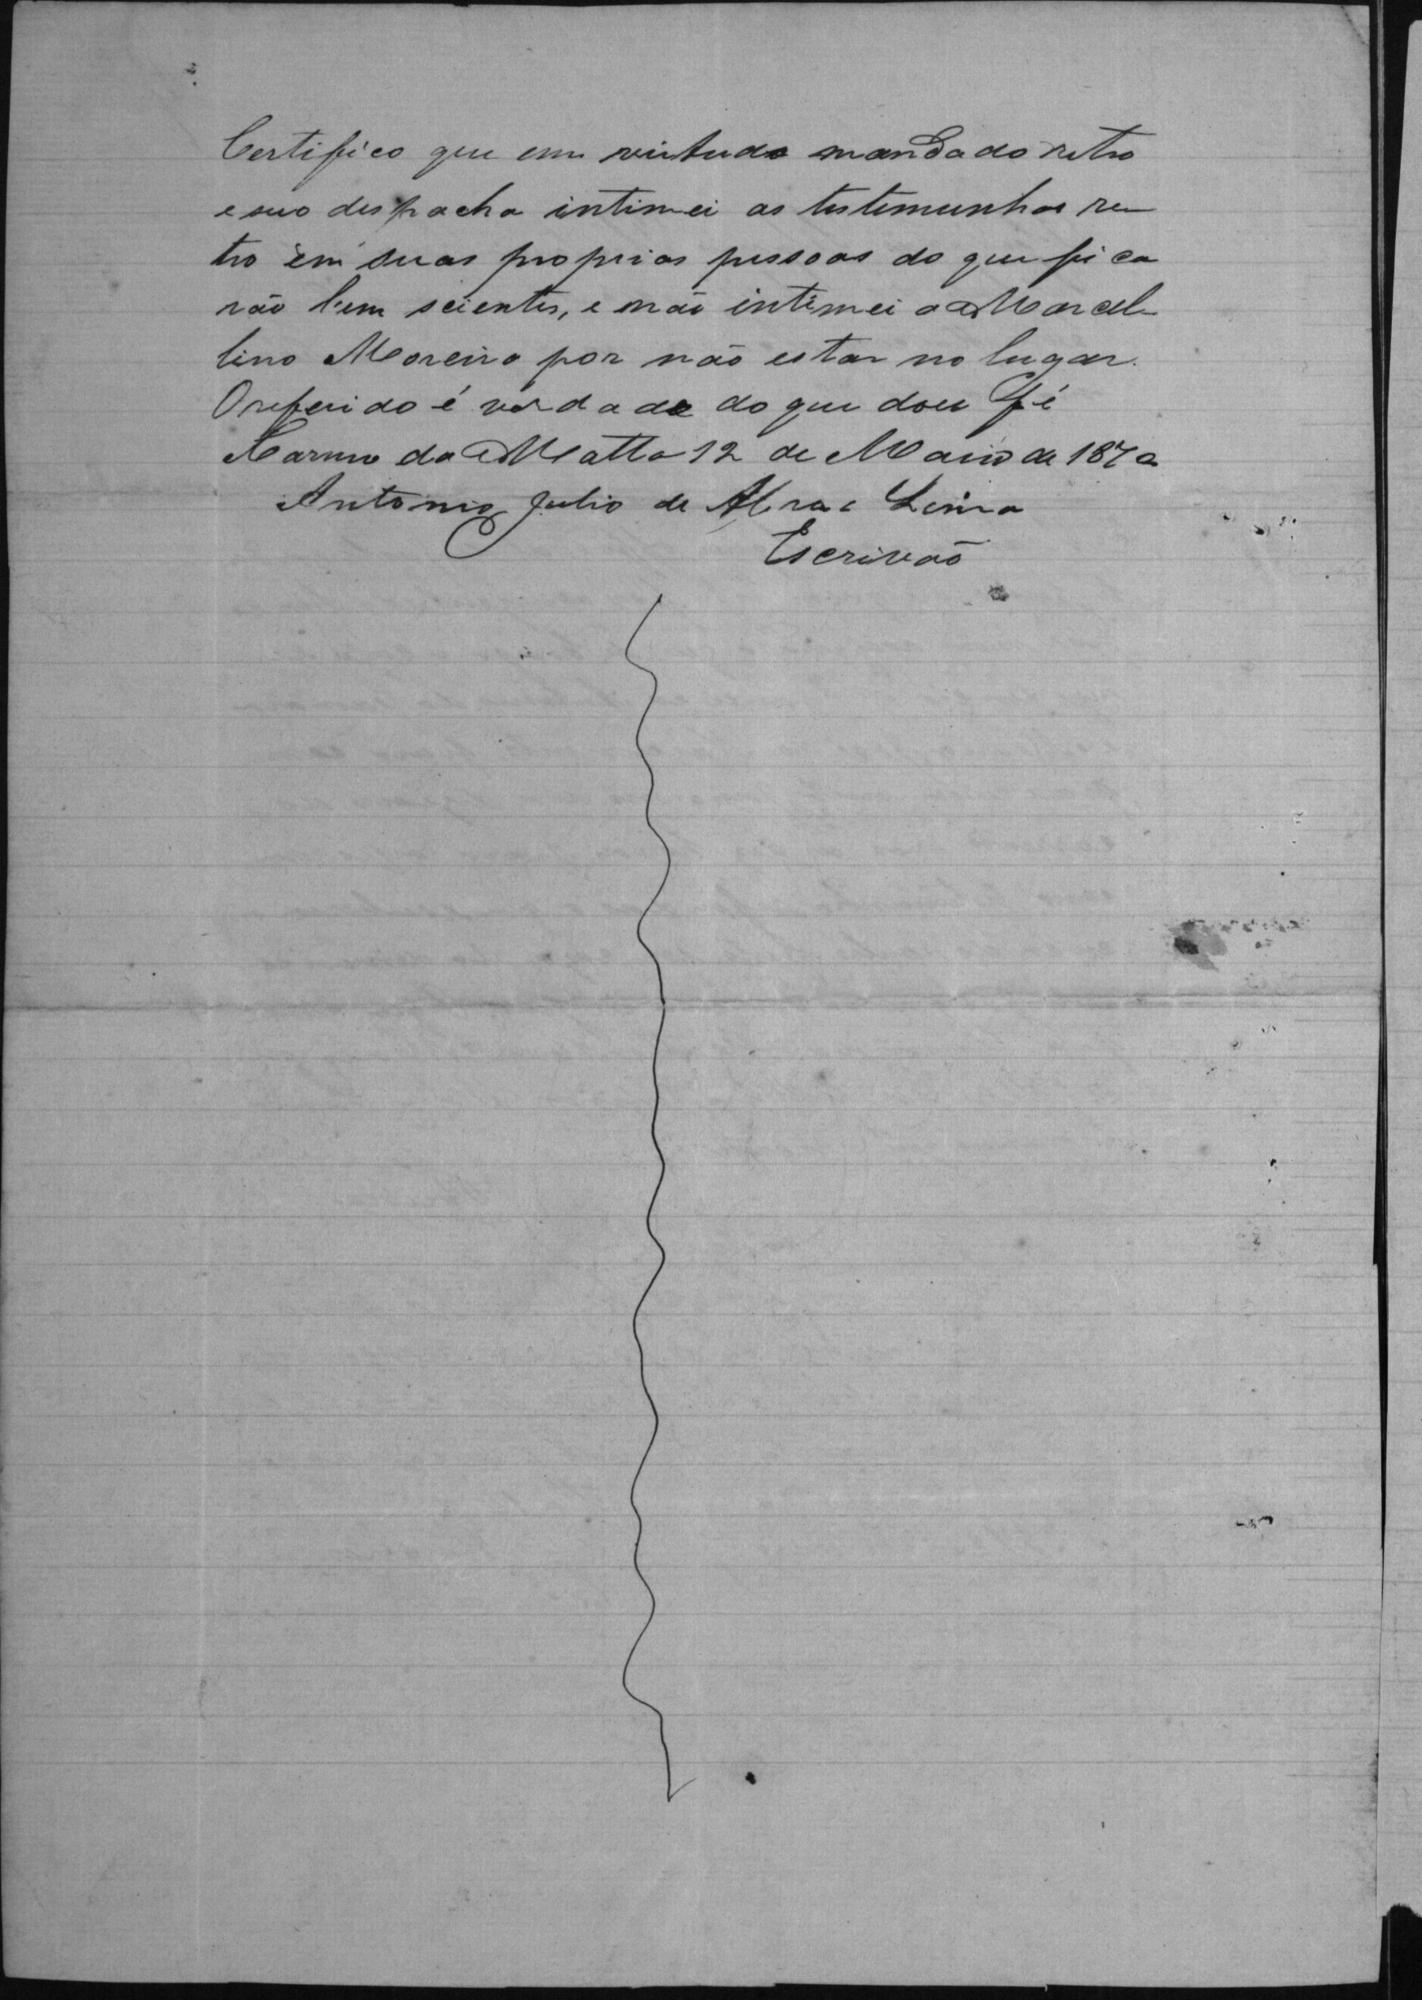 Certifico que em virtude mandado retro
e seo despacho intimei as testemunhas re
tro em suas proprias pessoas do que fica
rão bem scientes, e não intimei a Marcel
lino Moreira por não estar no lugar.
O referido é verdade do que dou fé
Carmo da Matta 12 de Maio de 187
Antonio Julio de Lima
Escrivão